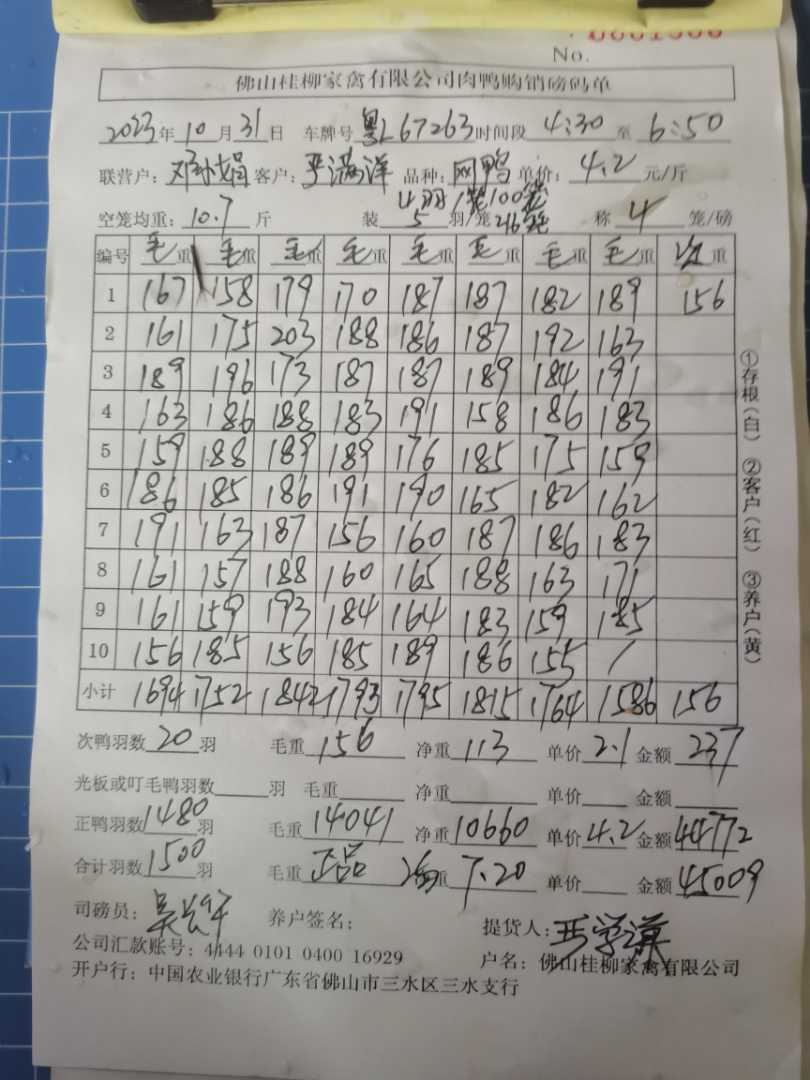 No.
佛山桂柳家禽有限公司肉鸭购销磅码单
2023年10月31日 车牌号 粤L67263 时间段 4:30 至 6:50
联营户: 客户: 严满洋 品种: 网鸭 单价: 4.2 元/斤
4羽/笼100笼
空笼均重: 10.7 斤 装 5 羽/笼 216笼 称 4 笼/磅
编号 毛重 毛重 毛重 毛重 毛重 毛重 毛重 毛重 次重
1 167 158 179 170 187 187 182 189 156
2 161 175 203 188 186 187 192 163
3 189 196 173 187 187 189 184 191
4 163 186 188 183 191 158 186 183
5 159 188 189 189 176 185 175 159
6 186 185 186 191 190 165 182 162
7 191 163 187 156 160 187 186 183
8 161 157 188 160 165 188 163 171
9 161 159 193 184 164 183 159 185
10 156 185 156 185 189 186 155 /
小计 1694 1752 1842 1793 1795 1815 1764 1586 156
次鸭羽数 20 羽 毛重 156 净重 113 单价 2.1 金额 237
光板或叮毛鸭羽数 羽 毛重 净重 单价 金额
正鸭羽数 1480 羽 毛重 14041 净重 10660 单价 4.2 金额 44772
合计羽数 1500 羽 毛重 正品 重 7.20 单价 金额 45009
司磅员: 养户签名: 提货人:
公司汇款账号: 4444 0101 0400 16929 户名: 佛山桂柳家禽有限公司
开户行: 中国农业银行广东省佛山市三水区三水支行
①存根(白) ②客户(红) ③养户(黄)